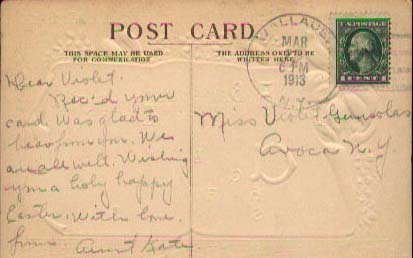 POST CARD.
THIS SPACE MAY BE USED
FOR COMMUNICATION
THE ADDRESS ONLY TO BE
WRITTEN HERE
WALLACE
MAR
6 PM
1913
U.S. POSTAGE
1 CENT 1
Dear Violet.
Rec'd your
card. Was glad to
hear from you. We
are all well. Wishing
you a holy happy
Easter. With love.
from Aunt Kate
Miss Violet
Avoca N.Y.